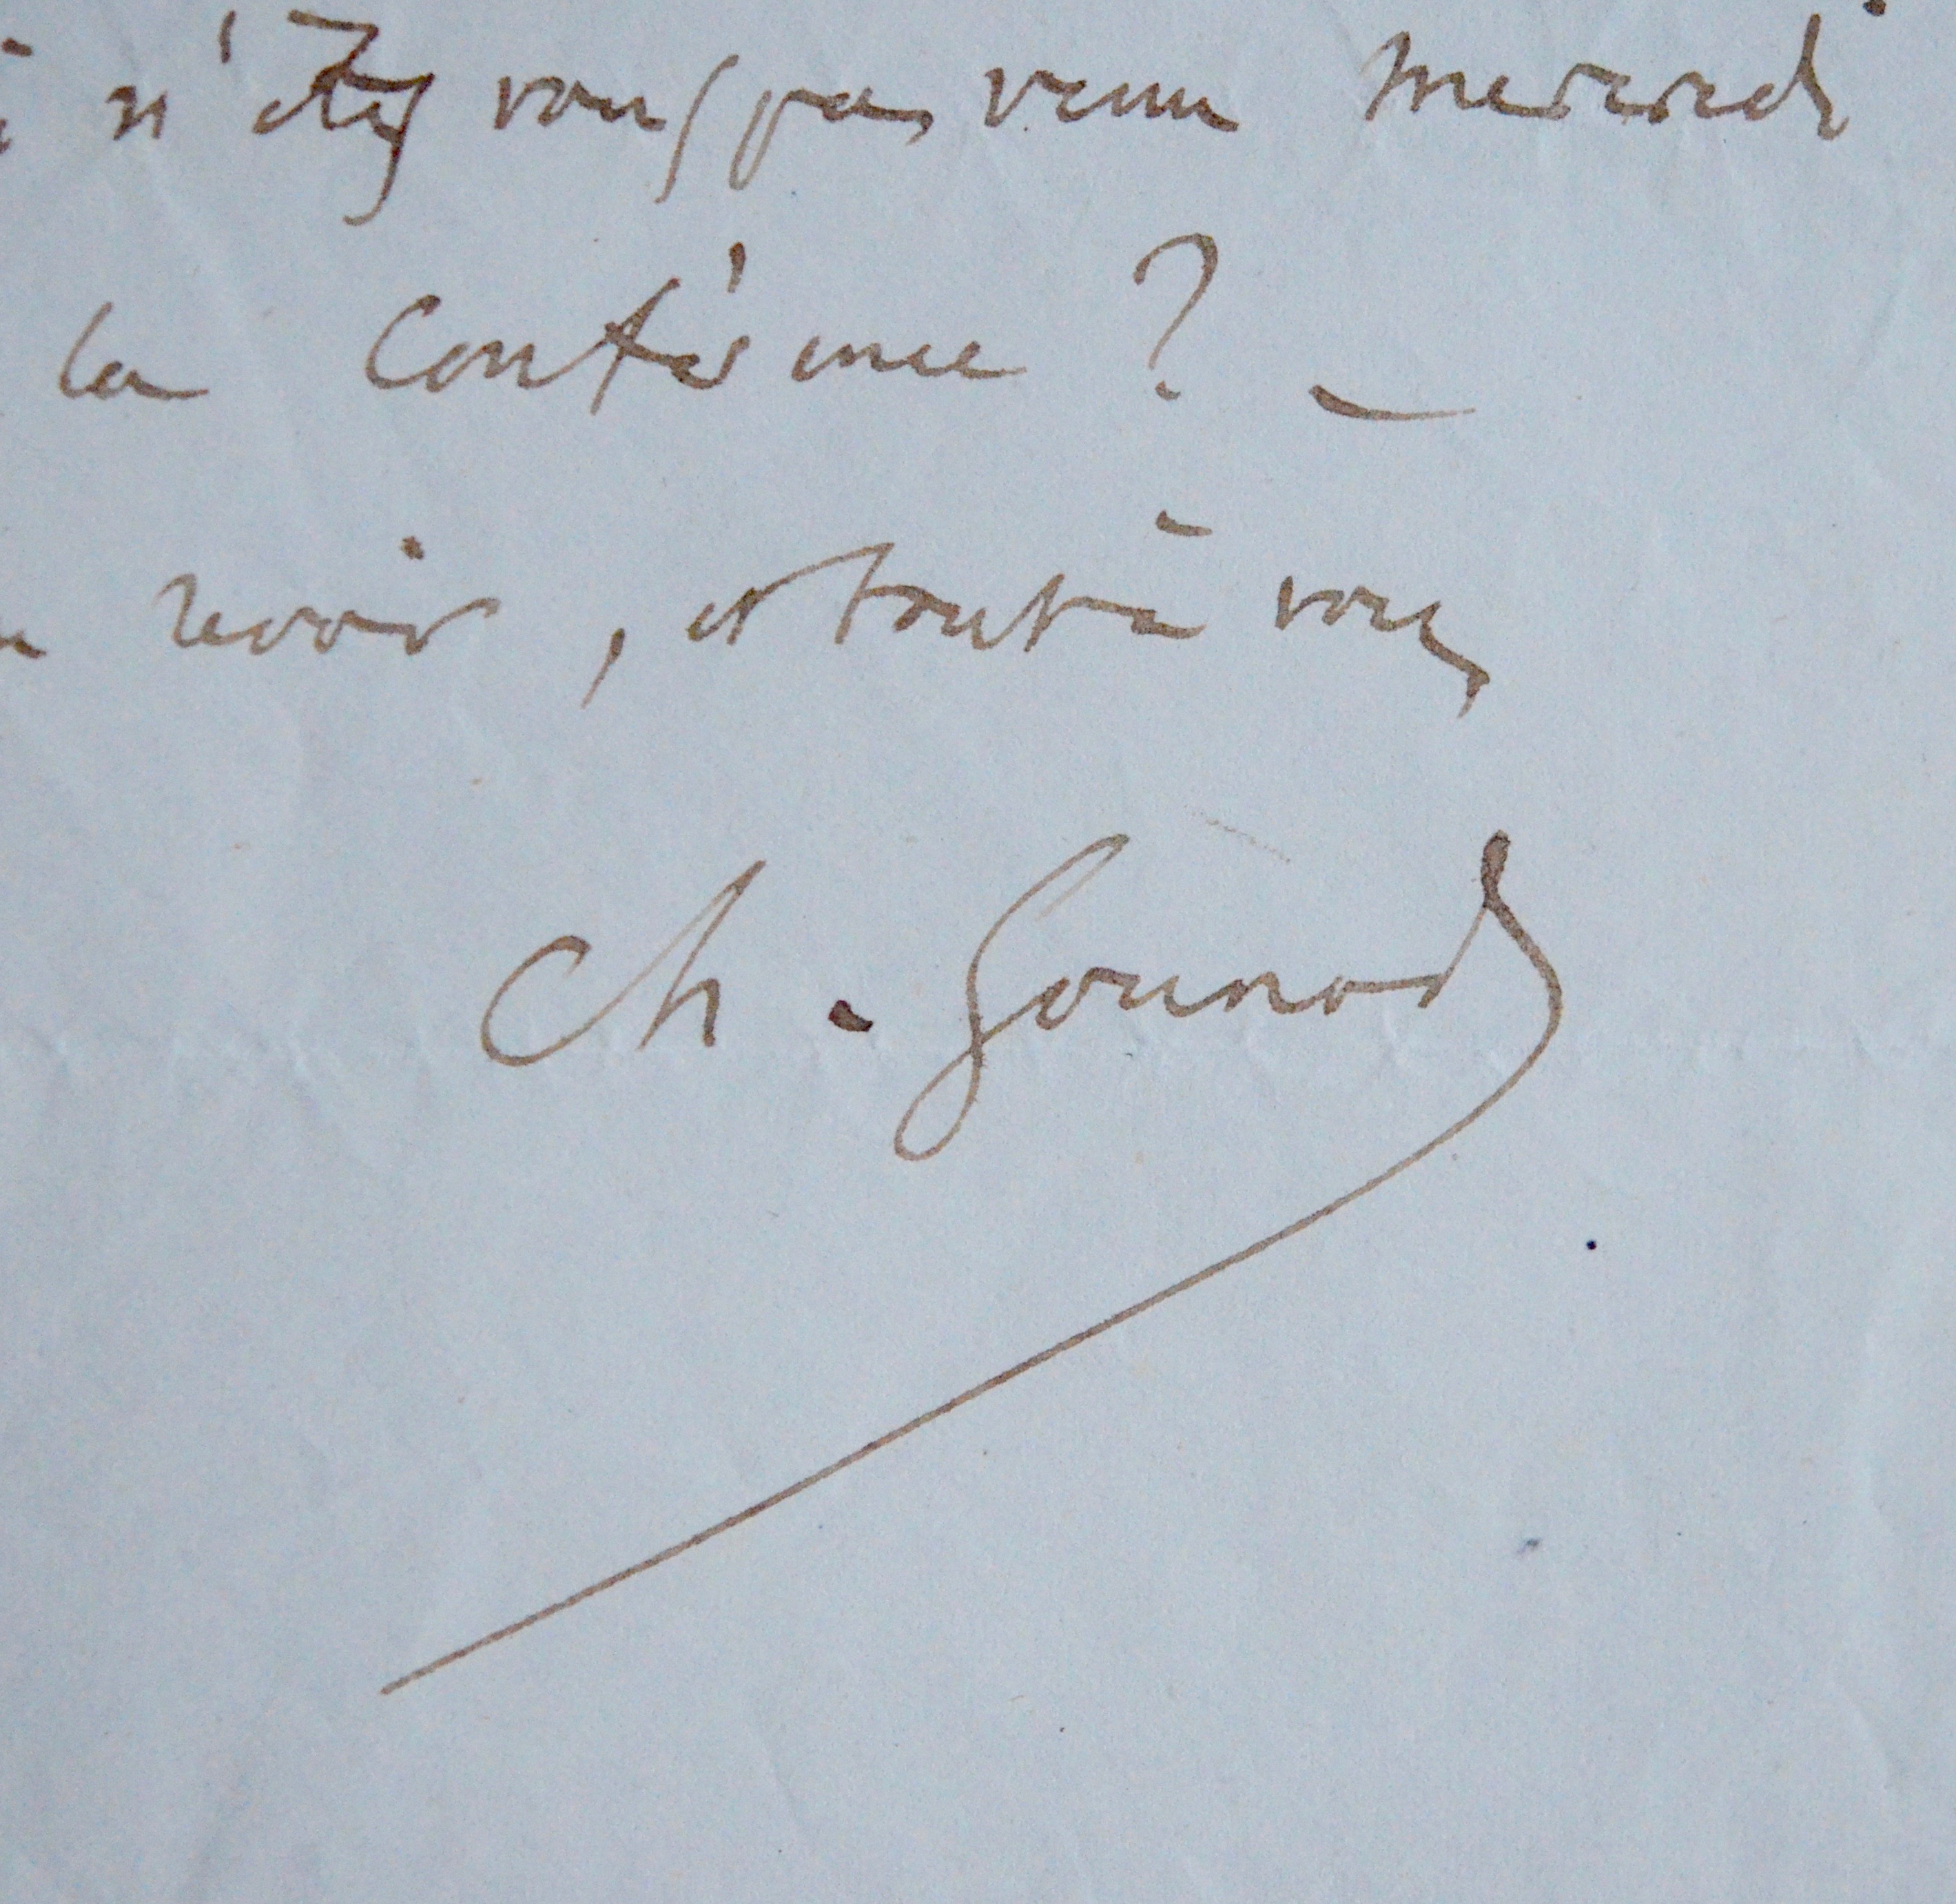 n'étiez vous pas venu mercredi
la Conférence ? _
revoir, et tout à vous
Ch. Gounod